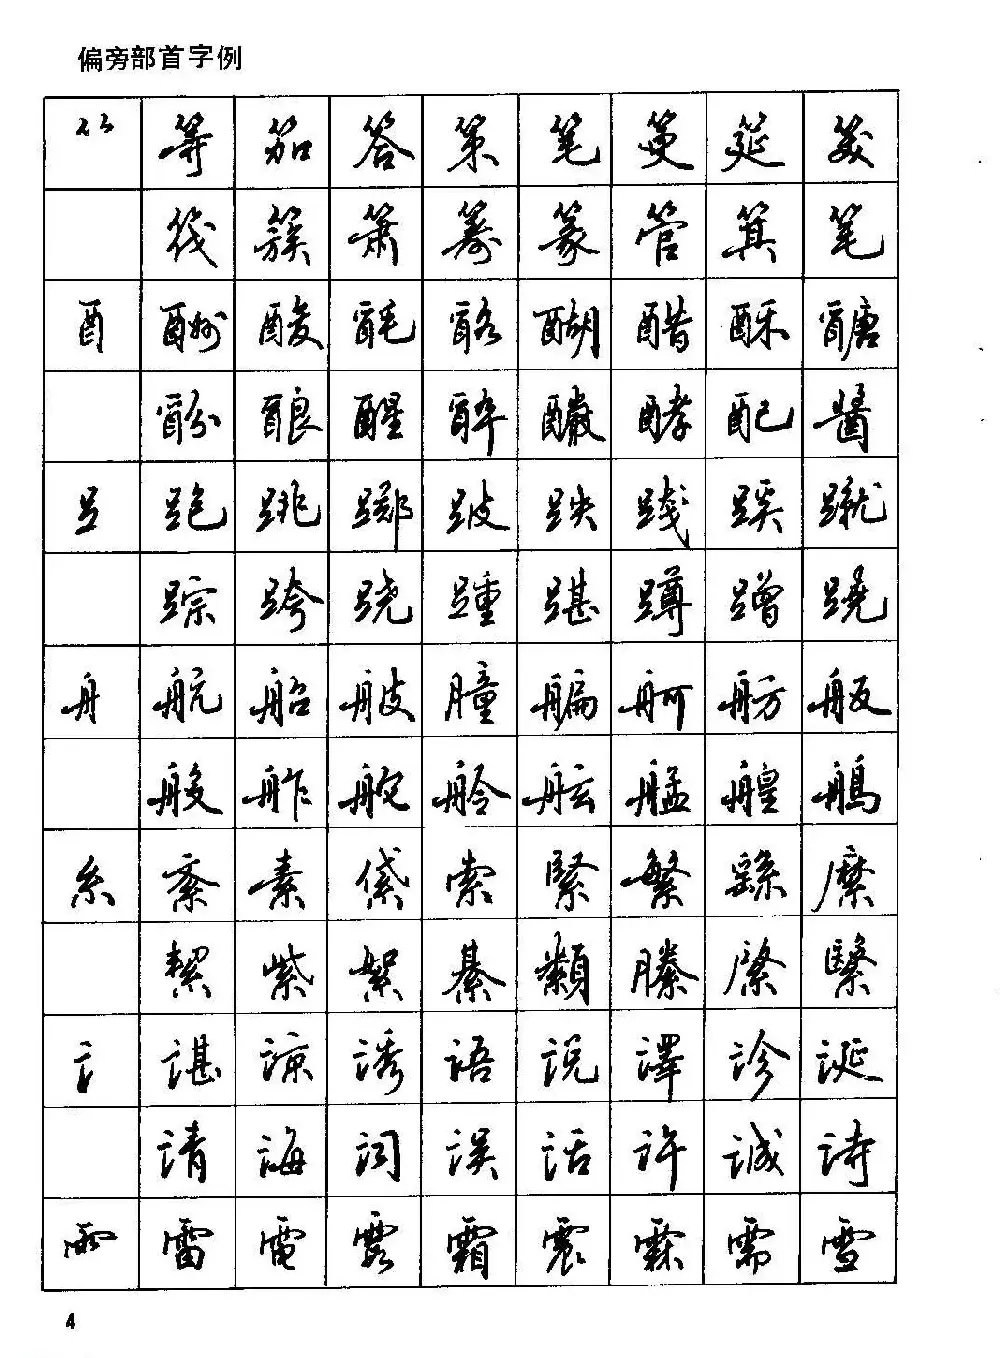 偏旁部首字例
⺮ 等 笳 答 策 笔 筵
筏 簇 箫 筹 篆 管 箕 笔
酉 酬 酸 酕 酪 醐 醋 酥 醣
酚 酿 醒 醉 酵 配 醬
𧾷 跑 跳 踯 跛 跌 践 蹊 蹴
踪 跨 跷 踵 踸 蹲 蹭 蹺
舟 航 船 艧 艑 舸 舫 舨
艘 舴 舱 舲 舷 艋 艎
糸 紊 素 紧 索 緊 繁 繇 縻
絜 紫 絮 綦 纇 縢 綮 繄
讠 谌 谅 诱 语 说 譯 诊 诞
请 诲 词 误 话 许 诚 诗
雨 雷 電 露 霜 震 霖 需 雪
4